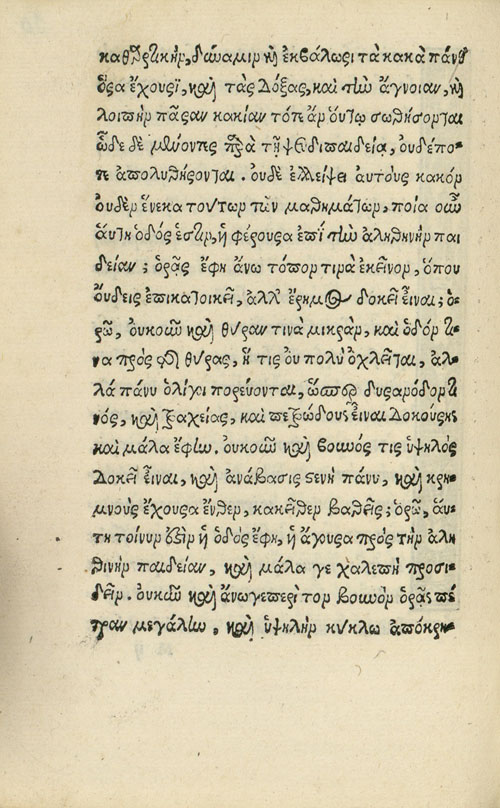 καθαρτικὴν, δύναμιν καὶ ἐκβάλωσι τὰ κακὰ πάνθ
ὅσα ἔχουσϊ, καὶ τὰς δόξας, καὶ τὴν ἄγνοιαν, καὶ
λοιπὴν πᾶσαν κακίαν τότε ἂν ὅυτω σωθήσονται
ὧδε δὲ μένοντες παρὰ τῇ ψευδοπαιδείᾳ, ὀυδέπο-
τε ἀπολυθήσονται. ὀυδὲ ἐλλείψει ἀυτοὺς κακὸν
ὀυδὲν ἕνεκα τούτων τῶν μαθημάτων, ποία οὖν
ἅυτη ὁδός ἐστιν, ἡ φέρουσα ἐπὶ τὴν ἀληθηνὴν παι
δείαν; ὁρᾷς ἔφη ἄνω τόπον τινὰ ἐκεῖνον, ὅπου
ὄυδεις ἐπικατοικεῖ, ἀλλ' ἔρημος δοκεῖ εἶναι; ὁ-
ρῶ, ὀυκοῦν καὶ θύραν τινὰ μικρὰν, καὶ ὁδόν τι-
να πρὸς τῆς θύρας, ἥ τις ὀυ πολὺ ὀχλεῖται, ἀλ-
λὰ πάνυ ὀλίγοι πορεύονται, ὥσπερ δυσανόδου τι
νός, καὶ τραχείας, καὶ πετρώδους εἶναι δοκούσης
καὶ μάλα ἔφην. ὀυκοῦν καὶ βουνὸς τις ὑψηλὸς
δοκεῖ εἶναι, καὶ ἀνάβασις στενὴ πάνυ, καὶ κρη-
μνοὺς ἔχουσα ἔνθεν, κακεῖθεν βαθεῖς; ὁρῶ, ἅυ-
τη τοίνυν ἐστὶν ἡ ὁδὸς ἔφη, ἡ ἄγουσα πρὸς τὴν ἀλη
θινὴν παιδείαν, καὶ μάλα γε χαλεπὴ προσι-
δεῖν. ὀυκοῦν καὶ ἄνωγεπερὶ τον βουνὸν ὁρᾷς πέ
τραν μεγάλην, καὶ ὑψηλὴν κυκλω ἀπόκρη-